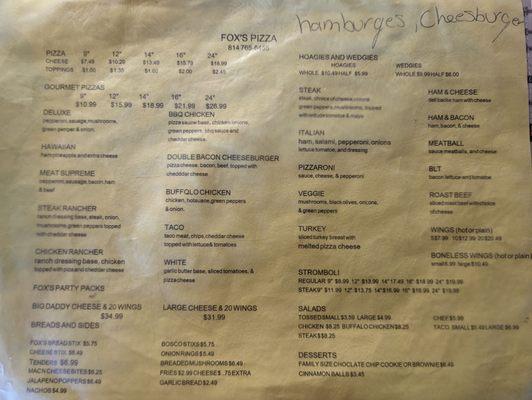 hamburges, Cheesburger
FOX'S PIZZA
PIZZA 9" 12" 14" 16" 24"
CHEESE $7.49 $10.29 $13.49 $15.79 $18.99
TOPPINGS $1.00 $1.35 $2.00 $2.45
GOURMET PIZZAS
9" 12" 14" 16" 24"
$10.99 $15.99 $18.99 $21.99 $26.99
DELUXE
pepperoni, sausage, mushrooms,
green pepper & onion.
HAWAIIAN
ham pineapple and extra cheese
MEAT SUPREME
pepperoni, sausage, bacon, ham
& beef
STEAK RANCHER
ranch dressing base, steak, onion,
mushrooms, green peppers topped
with cheddar cheese
CHICKEN RANCHER
ranch dressing base, chicken
topped with pizza and cheddar cheese
BBQ CHICKEN
pizza sauce base, chicken, onions,
green peppers, bbq sauce and
cheddar cheese.
DOUBLE BACON CHEESEBURGER
pizza cheese, bacon, beef, topped with
cheddar cheese
BUFFALO CHICKEN
chicken, hot sauce, green peppers
& onion.
TACO
taco meat, chips, cheddar cheese
topped with lettuce & tomatoes
WHITE
garlic butter base, sliced tomatoes, &
pizza cheese
FOX'S PARTY PACKS
BIG DADDY CHEESE & 20 WINGS
$34.99
LARGE CHEESE & 20 WINGS
$31.99
BREADS AND SIDES
FOX'S BREADSTIX $5.75
CHEESE STIX $6.49
TENDERS $6.99
MAC N CHEESE BITES $6.25
JALAPENO POPPERS $6.49
NACHOS $4.99
BOSCO STIX $5.75
ONION RINGS $5.49
BREADED MUSHROOMS $6.49
FRIES $2.99 CHEESE $ .75 EXTRA
GARLIC BREAD $2.49
HOAGIES AND WEDGIES
HOAGIES WEDGIES
WHOLE 10.49 HALF $5.99 WHOLE $9.99 HALF $6.00
STEAK
steak, choice of cheese, onions
green peppers, mushrooms, topped
with lettuce, tomatoe & mayo
ITALIAN
ham, salami, pepperoni, onions
lettuce, tomato, and dressing
PIZZARONI
sauce, cheese, & pepperoni
VEGGIE
mushrooms, black olives, onions,
& green peppers
TURKEY
sliced turkey breast with
melted pizza cheese
HAM & CHEESE
deli baske ham with cheese
HAM & BACON
ham, bacon, & cheese
MEATBALL
sauce, meatballs, and cheese
BLT
bacon, lettuce and tomatoe
ROAST BEEF
sliced roast beef with choice
of cheese
WINGS (hot or plain)
5 $7.99 10 $12.99 20 $20.49
BONELESS WINGS (hot or plain)
small 6.99 large $10.49
STROMBOLI
REGULAR 9" $9.99 12" $13.99 14" 17.49 16" $18.99 24" $19.99
STEAK 9" $11.99 12" $13.75 14" $16.99 16" $18.99 24" $19.99
SALADS
TOSSED SMALL $3.59 LARGE $4.99 CHEF $5.99
CHICKEN $8.25 BUFFALO CHICKEN $8.25 TACO SMALL $5.49 LARGE $6.99
STEAK $8.25
DESSERTS
FAMILY SIZE CHOCLATE CHIP COOKIE OR BROWNIE $8.49
CINNAMON BALLS $3.45